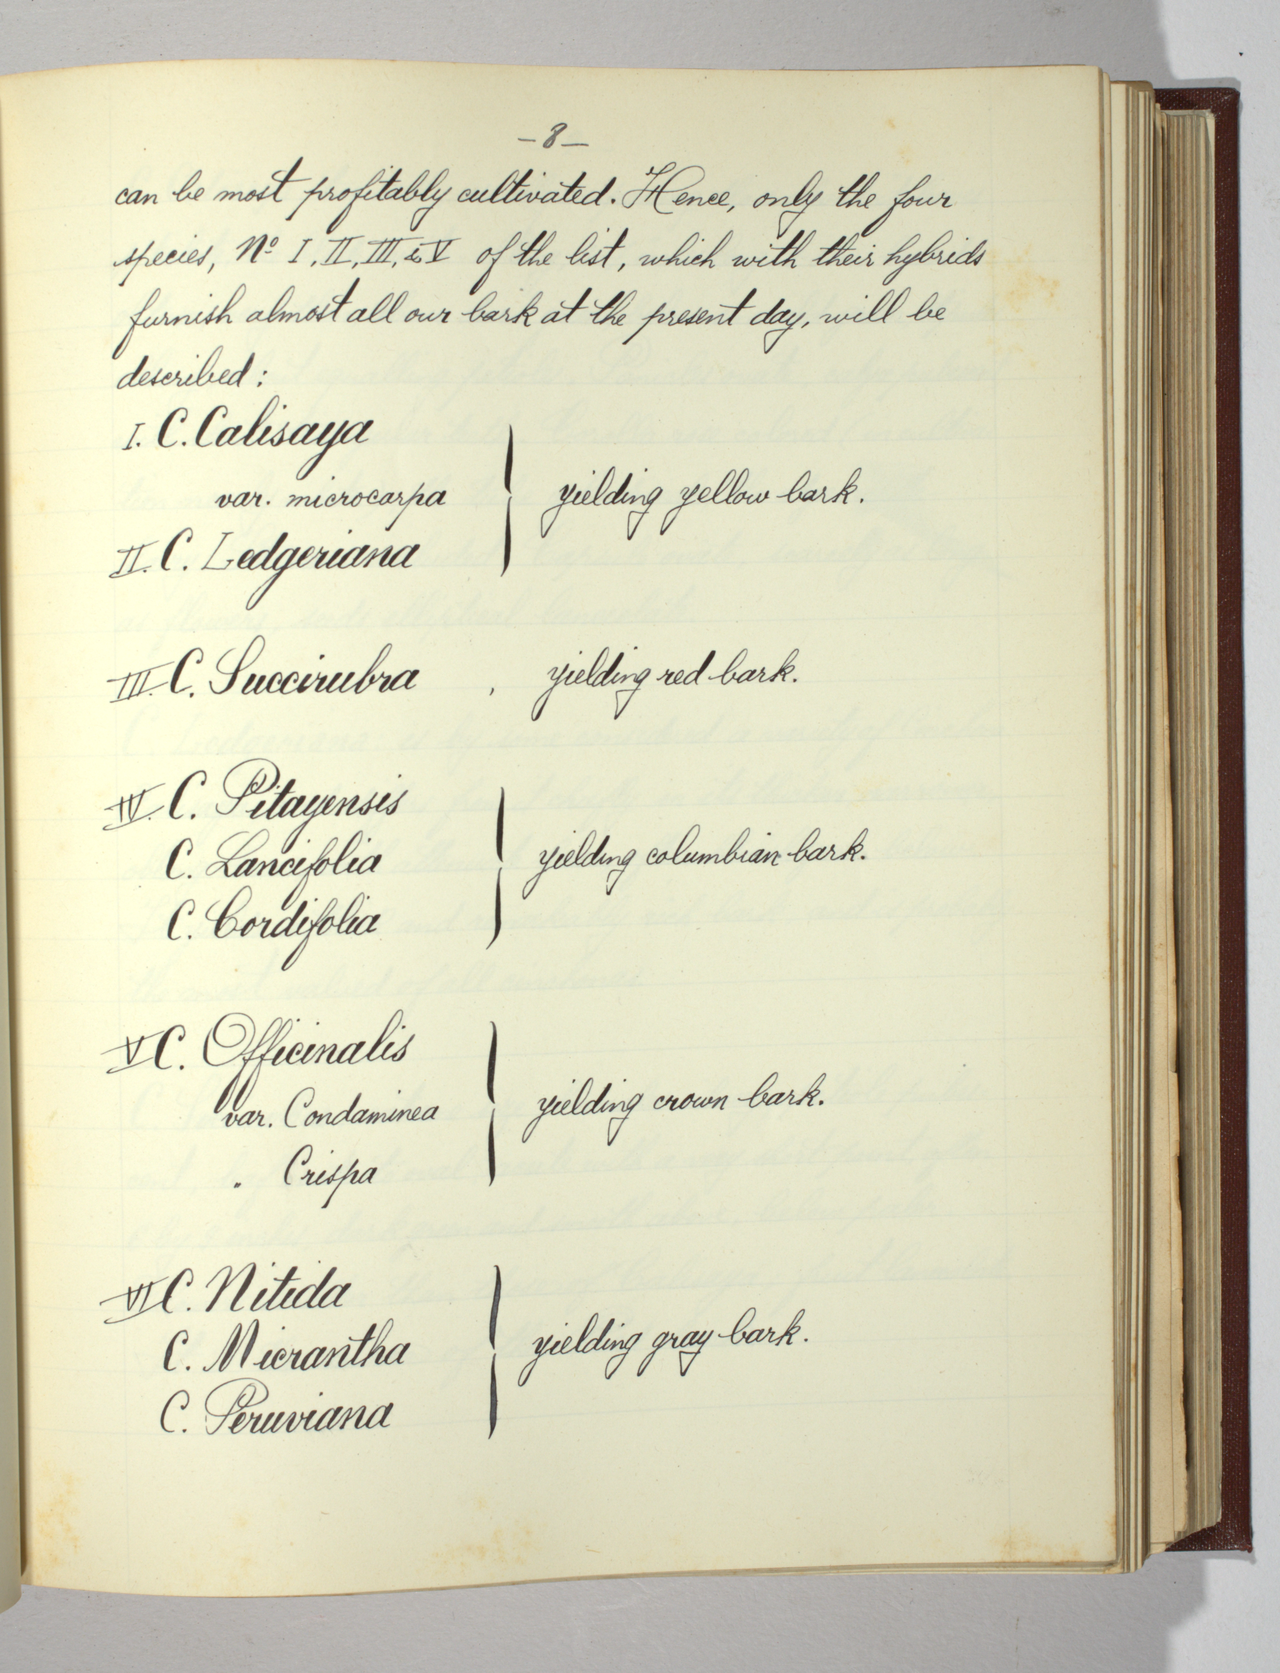 -8-
can be most profitably cultivated. Hence, only the four
species, Nº I, II, III, & V of the list, which with their hybrids
furnish almost all our bark at the present day, will be
described:
I. C. Calisaya
var. microcarpa
yielding yellow bark.
II. C. Ledgeriana
III. C. Succirubra , yielding red bark.
IV. C. Pitayensis
C. Lancifolia
yielding columbian bark.
C. Cordifolia
V C. Officinalis
var. Condaminea
yielding crown bark.
" Crispa
VI C. Nitida
C. Micrantha
yielding gray bark.
C. Peruviana